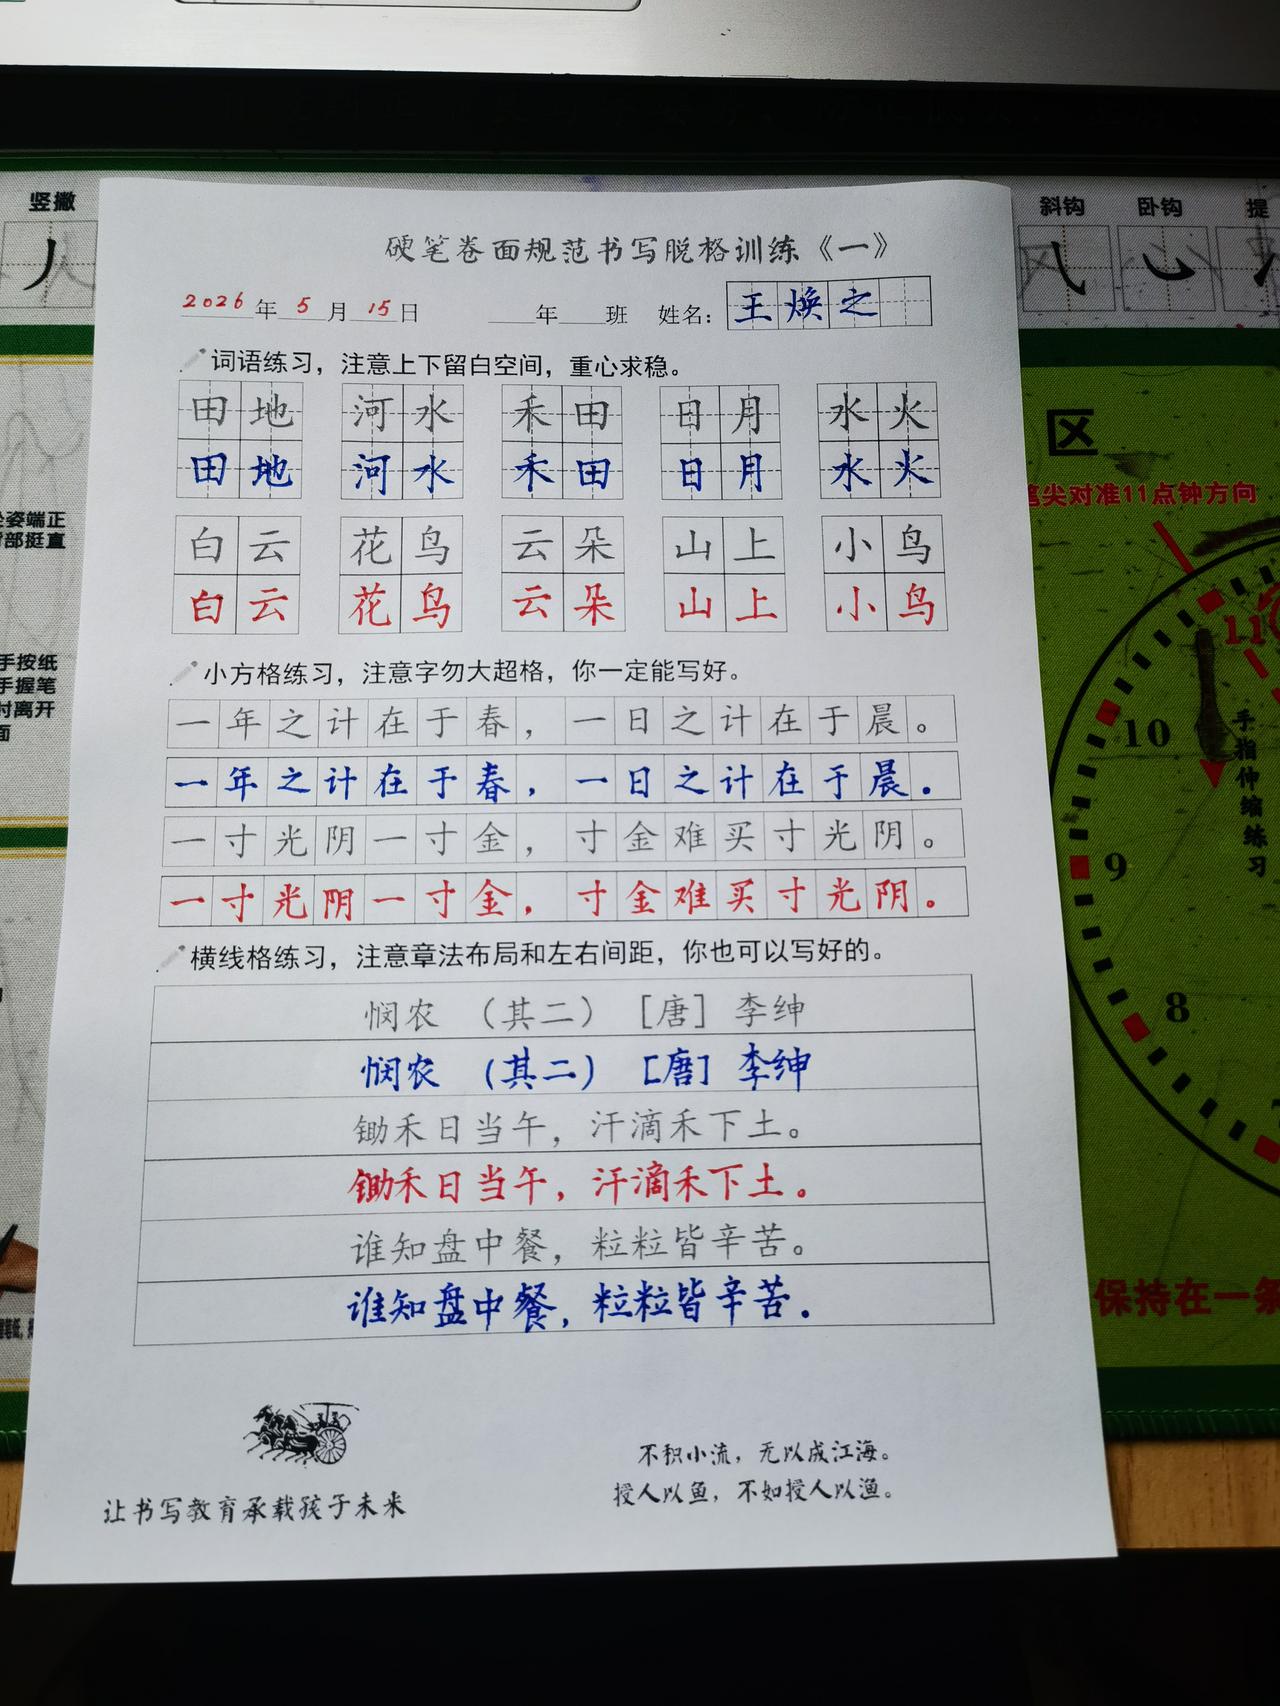 竖撇
斜钩 卧钩 提
硬笔卷面规范书写脱格训练《一》
2026年 5月 15日 年 班 姓名：王焕之
词语练习，注意上下留白空间，重心求稳。
田地 河水 禾田 日月 水火
田地 河水 禾田 日月 水火
白云 花鸟 云朵 山上 小鸟
白云 花鸟 云朵 山上 小鸟
小方格练习，注意字勿大超格，你一定能写好。
一年之计在于春，一日之计在于晨。
一年之计在于春，一日之计在于晨.
一寸光阴一寸金，寸金难买寸光阴。
一寸光阴一寸金，寸金难买寸光阴.
横线格练习，注意章法布局和左右间距，你也可以写好的。
悯农 （其二） [唐] 李绅
悯农 （其二） [唐] 李绅
锄禾日当午，汗滴禾下土。
锄禾日当午，汗滴禾下土.
谁知盘中餐，粒粒皆辛苦。
谁知盘中餐，粒粒皆辛苦.
让书写教育承载孩子未来
不积小流，无以成江海。
授人以鱼，不如授人以渔。
姿端正
部挺直
手按纸
手握笔
时离开
面
区
笔尖对准11点钟方向
11
10
9
8
手指伸缩练习
保持在一条